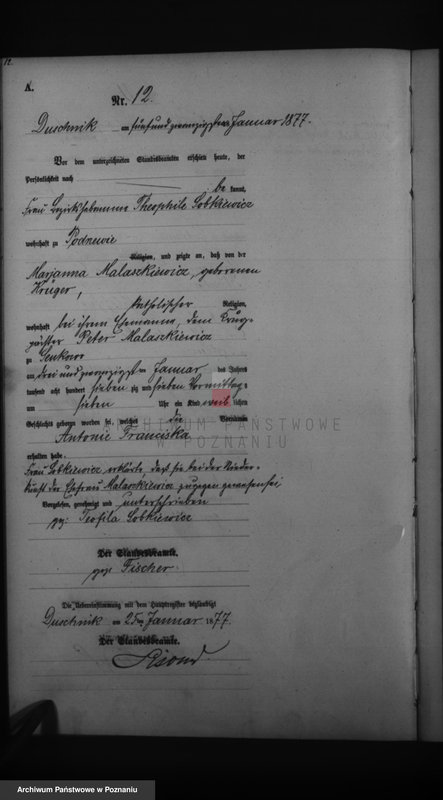 12.
A.
Nr. 12.
Duschnik am fünfundzwanzigsten Januar 1877.
Vor dem unterzeichneten Standesbeamten erschien heute, der
Persönlichkeit nach
be kannt,
Frau Bezirkshebamme Theophile Sobkiewicz
wohnhaft zu Podrzewie
Religion, und zeigte an, daß von der
Marjanna Malaszkiewicz, geborenen
Krüger,
katholischer Religion,
wohnhaft bei ihrem Ehemanne, dem Krug-
pächter Peter Malaszkiewicz
zu
an drei und zwanzigsten Januar des Jahres
tausend acht hundert sieben zig und sieben Vormittags
um sieben Uhr ein Kind weib lichen
Geschlechts geboren worden sei, welches die Vornamen
Antonie Franciska
erhalten habe.
Frau Sobkiewicz erklärte, daß sie bei der Nieder-
kunft der Ehefrau Malaszkiewicz zugegen gewesen sei
Vorgelesen, genehmigt und unterschrieben
gez. Teofila Sobkiewicz
Der Standesbeamte.
gez. Fischer.
Die Uebereinstimmung mit dem Hauptregister beglaubigt
Duschnik am 25ten Januar 1877.
Der Standesbeamte.
ARCHIWUM PAŃSTWOWE
W POZNANIU
Archiwum Państwowe w Poznaniu